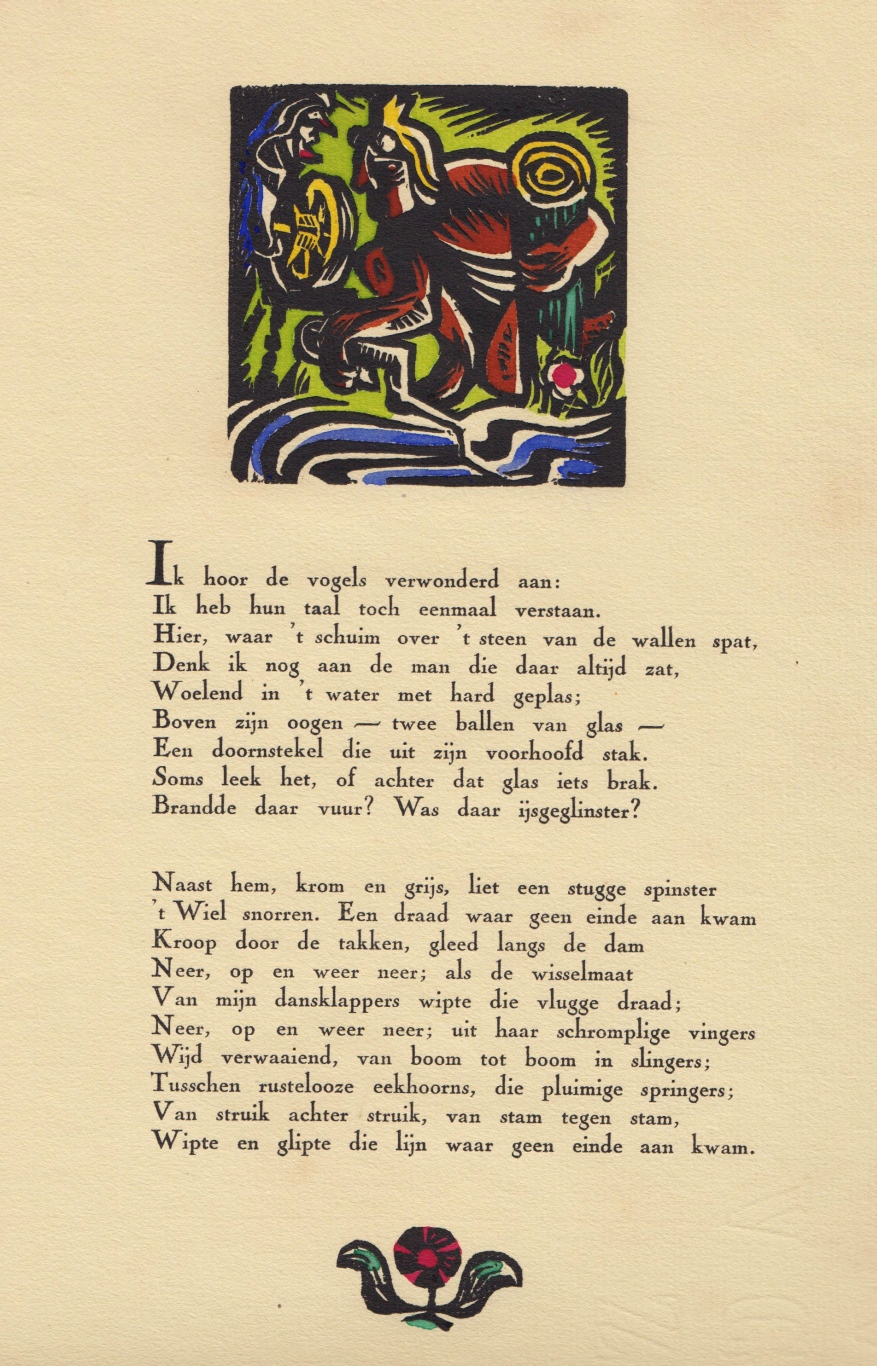 Ik hoor de vogels verwonderd aan:
Ik heb hun taal toch eenmaal verstaan.
Hier, waar 't schuim over 't steen van de wallen spat,
Denk ik nog aan de man die daar altijd zat,
Woelend in 't water met hard geplas;
Boven zijn oogen — twee ballen van glas —
Een doornstekel die uit zijn voorhoofd stak.
Soms leek het, of achter dat glas iets brak.
Brandde daar vuur? Was daar ijsgeglinster?
Naast hem, krom en grijs, liet een stugge spinster
't Wiel snorren. Een draad waar geen einde aan kwam
Kroop door de takken, gleed langs de dam
Neer, op en weer neer; als de wisselmaat
Van mijn dansklappers wipte die vlugge draad;
Neer, op en weer neer; uit haar schromplige vingers
Wijd verwaaiend, van boom tot boom in slingers;
Tusschen rustelooze eekhoorns, die pluimige springers;
Van struik achter struik, van stam tegen stam,
Wipte en glipte die lijn waar geen einde aan kwam.